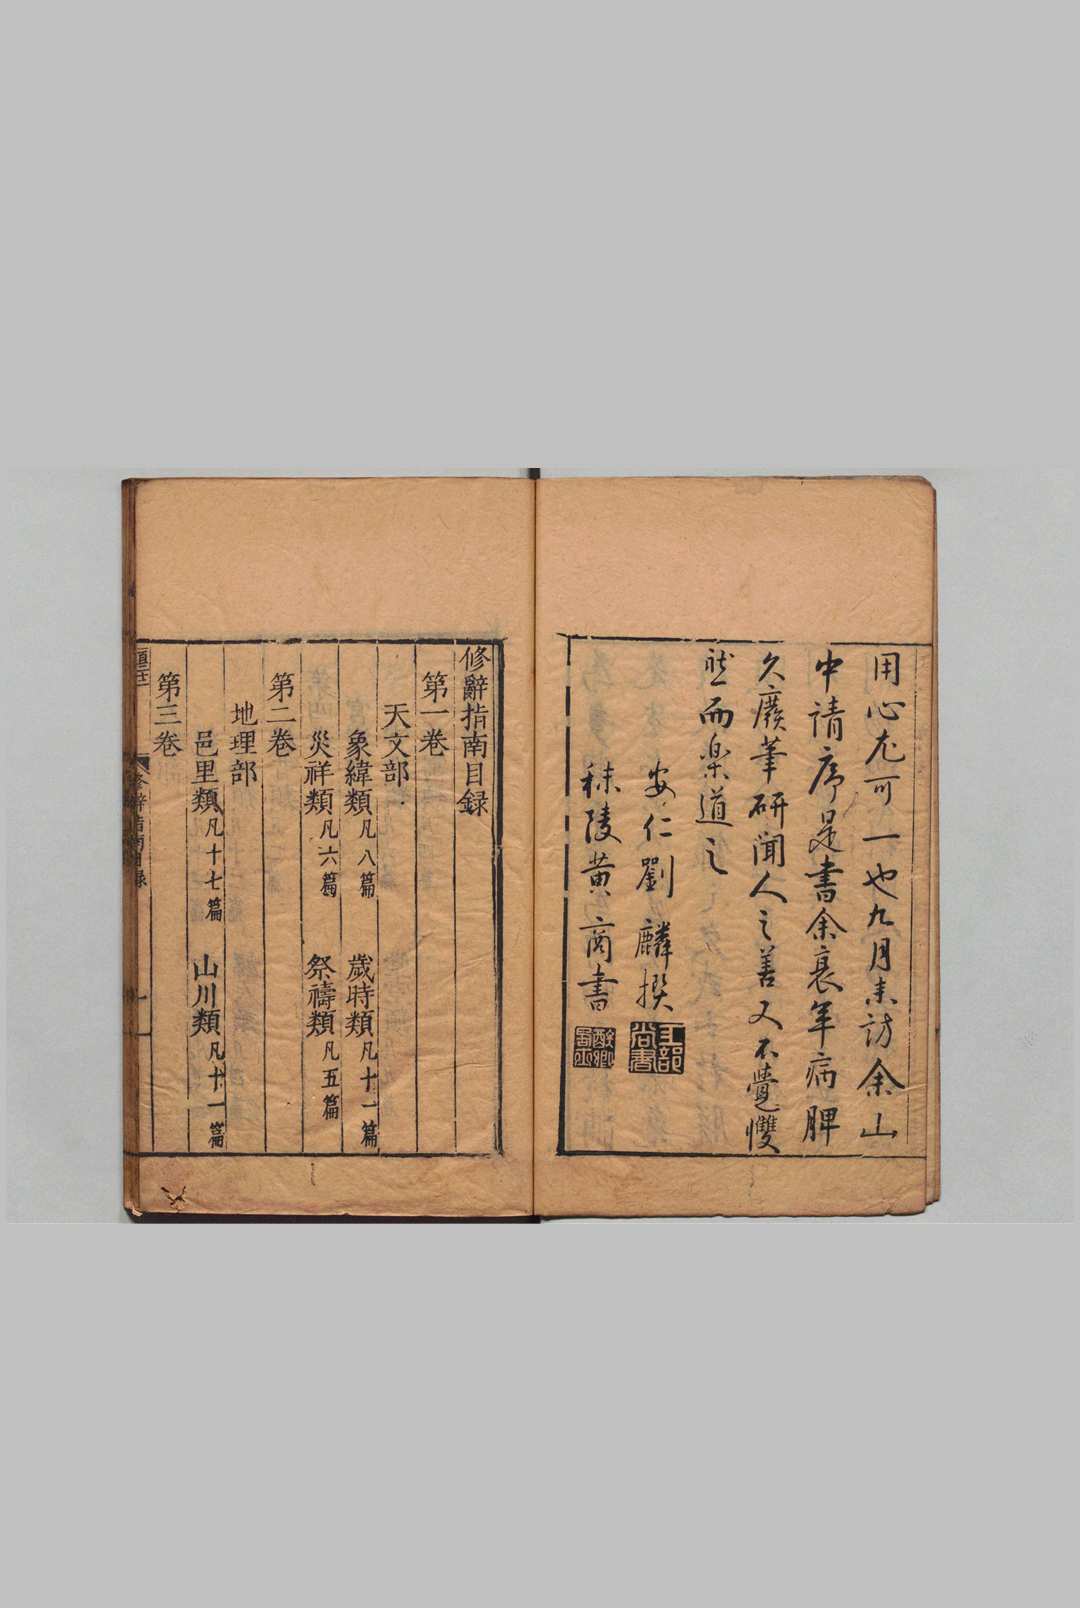 用心尤可一也九月未訪余山
中請序是書余衰年病脾
久廢筆研聞人之善又不覺雙
然而樂道之
安仁劉麟撰
工部尚書
秣陵黄商書
修辭指南目録
第一卷
天文部
象緯類凡八篇 歲時類凡十一篇
災祥類凡六篇 祭禱類凡五篇
第二卷
地理部
邑里類凡十七篇 山川類凡十一篇
第三卷
修辭指南目録